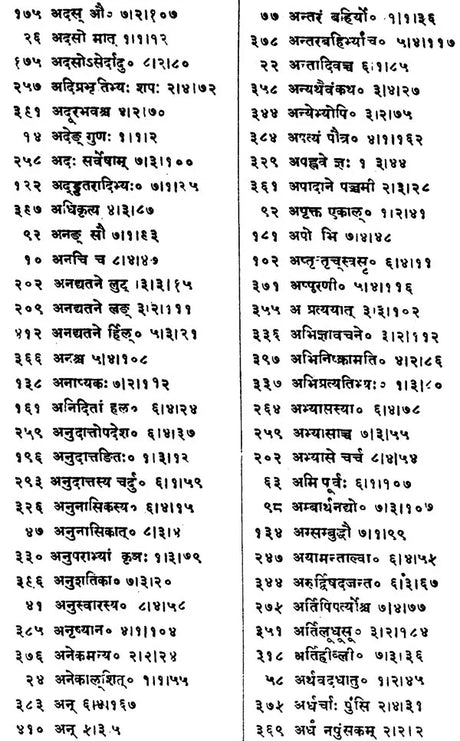 १७५ अदस् औ० ७।२।१०७
२६ अदसो मात् १।१।१२
१७५ अदसोऽसेर्दादु० ८।२।८०
२५७ अदिप्रभृतिभ्यः शपः २।४।७२
३९१ अदूरभवश्च ४।२।७०
१४ अदेङ् गुणः १।१।२
२५८ अदः सर्वेषाम् ७।३।१००
१२२ अद्ड्डतरादिभ्यः० ७।१।२५
३९७ अधिकृत्य ४।३।८७
९२ अनङ् सौ ७।१।९३
१० अनचि च ८।४।४७
२०२ अनद्यतने लुट् ।३।३।१५
२०९ अनद्यतने लङ् ३।२।१११
४१२ अनद्यतने र्हिल्० ५।३।२१
३६६ अनश्च ५।४।१०८
१३८ अनाप्यकः ७।२।११२
१६१ अनिदितां हल० ६।४।२४
२५९ अनुदात्तोपदेश० ६।४।३७
१९६ अनुदात्तङितः० १।३।१२
२९३ अनुदात्तस्य चर्दु० ६।१।५९
३२६ अनुनासिकस्य० ६।४।१५
४७ अनुनासिकात् ० ८।३।४
३३० अनुपराभ्यां कृञः १।३।७९
३९६ अनुशतिका० ७।३।२०
४१ अनुस्वारस्य० ८।४।५८
३८५ अनृष्यान० ४।१।१०४
३७६ अनेकमन्य० २।२।२४
२४ अनेकाल्शित् ० १।१।५५
३८३ अन् ६।४।१६७
४१० अन् ५।३।५
७७ अन्तरं बहिर्यो० १।१।३६
३७८ अन्तरबहिर्भ्यांच० ५।४।११७
२२ अन्तादिवच्च ६।१।८५
३५८ अन्यथैवंकथ० ३।४।२७
३४४ अन्येभ्योपि० ३।२।७५
३८४ अपत्यं पौत्र० ४।१।१६२
३२९ अपह्नवे ज्ञः १।३।४४
३६१ अपादाने पञ्चमी २।३।२८
९२ अपृक्त एकाल्० १।२।४१
१८१ अपो भि ७।४।४८
१०२ अप्तृन्तृच्स्वसृ० ६।४।११
३७१ अप्पूरणी० ५।४।११६
३५५ अ प्रत्ययात् ३।३।१०२
३३६ अभिज्ञावचने० ३।२।११२
३९७ अभिनिष्क्रामति० ४।३।८६
३३७ अभिप्रत्यतिभ्यः० १।३।८०
२६४ अभ्यासस्या० ६।४।७८
२५९ अभ्यासाच्च ७।३।५५
२०२ अभ्यासे चर्च ८।४।५४
६३ अमि पूर्वः ६।१।१०७
९८ अम्बार्थनद्यो० ७।३।१०७
१३४ अम्सम्बुद्धौ ७।१।९९
२४७ अयामन्ताल्वा० ६।४।५५
३४४ अरुर्द्विषदजन्त० ६।३।६७
२७५ अर्तिपिपर्त्योश्च ७।४।७७
३५१ अर्तिलूधूसू० ३।२।१८४
३१८ अर्तिह्रीव्ली० ७।३।३६
५८ अर्थवदधातु० १।२।४५
३७५ अर्धर्चाः पुंसि २।४।३१
३६९ अर्धं नपुंसकम् २।२।२